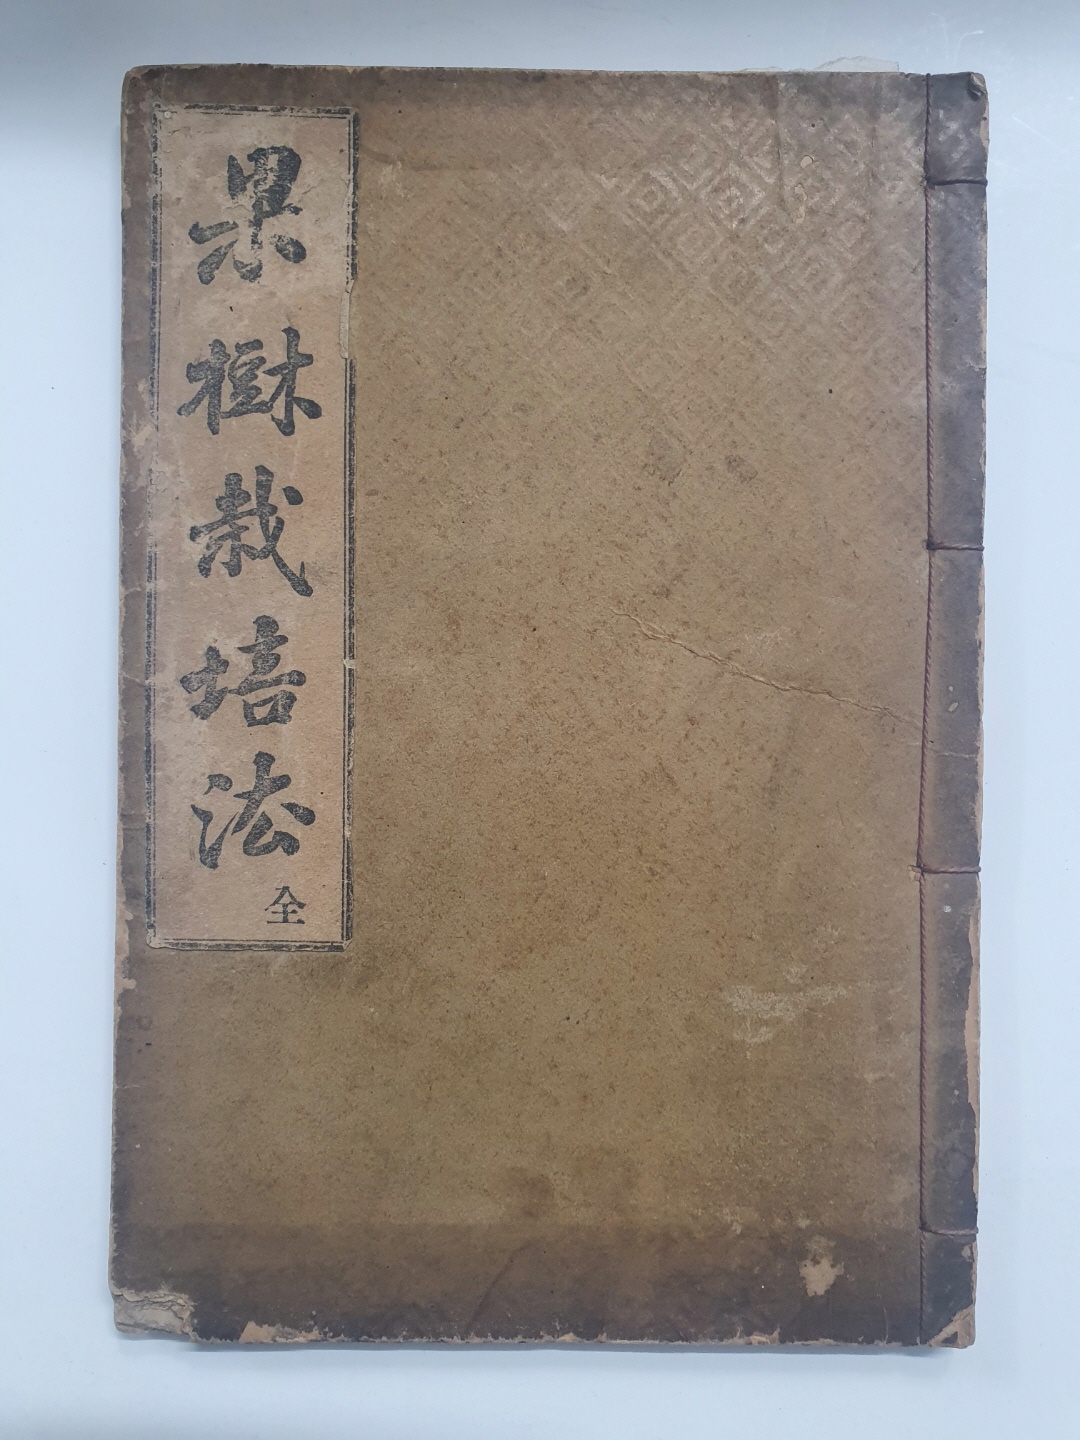 果樹栽培法
全